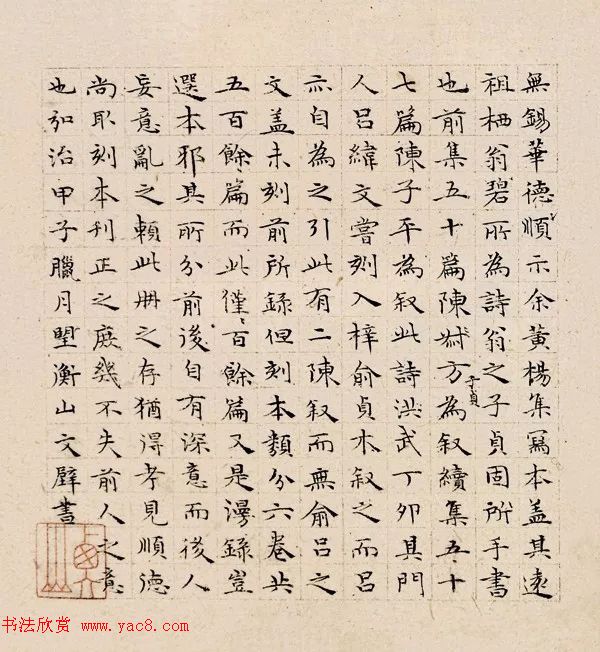 無錫華德順示余黃楊集寫本蓋其遠
祖栖翁碧所為詩翁之子貞固所手書
也前集五十篇陳叔方子貞為叙續集五十
七篇陳子平為叙此詩洪武丁卯其門
人呂緯文嘗刻入梓俞貞木叙之而呂
亦自為之引此有二陳叙而無俞呂之
文蓋未刻前所錄但刻本類分六卷共
五百餘篇而此僅百餘篇又是漫錄豈
選本邪其所分前後自有深意而後人
妄意亂之賴此冊之存猶得考見順德
尚取刻本刊正之庶幾不失前人之意
也弘治甲子臘月朢衡山文壁書
书法欣赏 www.yac8.com